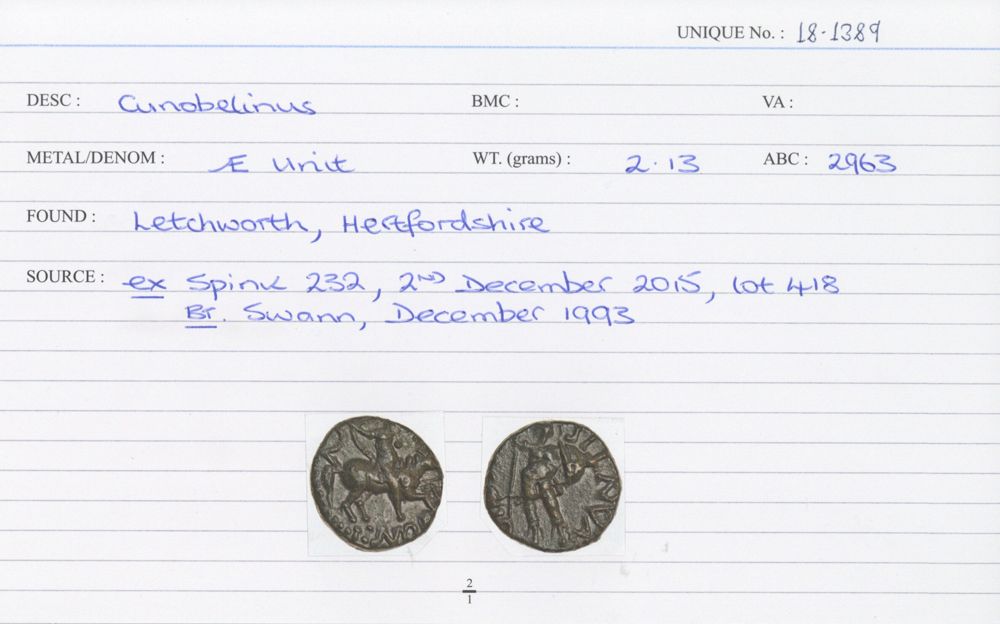 UNIQUE No. : 18-1389
DESC : Cunobelinus BMC : VA :
METAL/DENOM : Æ Unit WT. (grams) : 2.13 ABC : 2963
FOUND : Letchworth, Hertfordshire
SOURCE : ex Spink 232, 2ND December 2015, lot 418
Br. Swann, December 1993
2
1